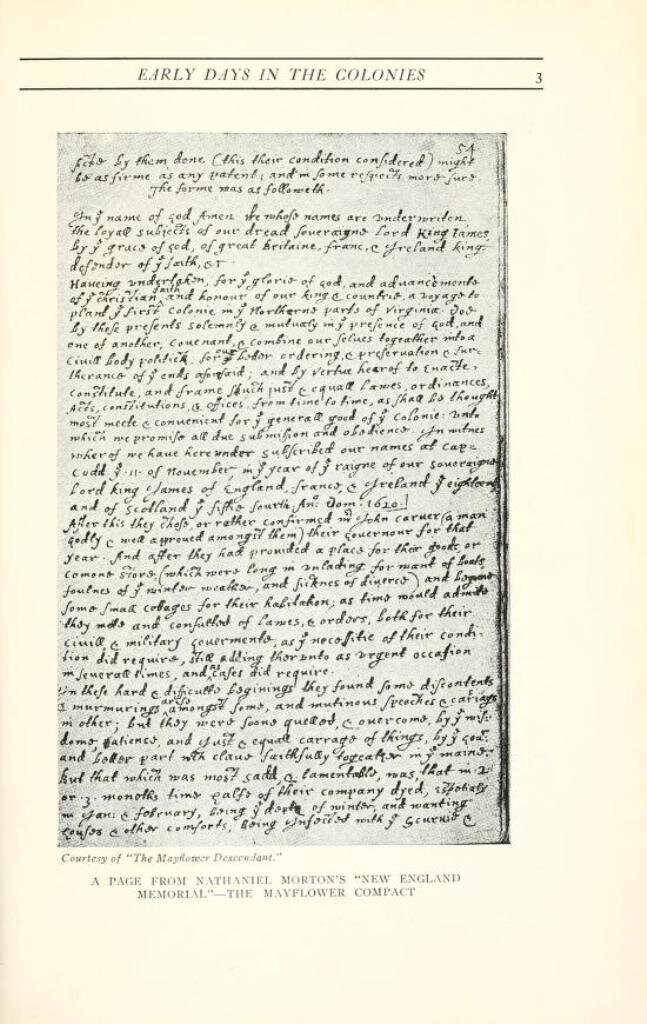 EARLY DAYS IN THE COLONIES 3
54
Acte by them done (this their condition considered) might
be as firme as any patent; and in some respects more sure.
The forme was as followeth.
In yͤ name of god Amen. We whose names are underwriten,
the loyall subjects of our dread soveraigne Lord King James
by yͤ grace of god, of great Britaine, franc, & Ireland king,
defender of yͤ faith, &c
Haveing undertaken, for yͤ glorie of god, and advancemente
of yͤ christian faith and honour of our king & countrie, a voyage to
plant yͤ first colonie in yͤ Northerne parts of Virginia. Doe
by these presents solemnly & mutualy in yͤ presence of god, and
one of another, covenant, & combine our selves togeather into a
Civill body politick, for our better ordering, & preservation & fur=
therance of yͤ ends aforesaid; and by vertue hearof to enacte,
constitute, and frame shuch just & equall lawes, ordinances,
Acts, constitutions, & offices, from time to time, as shall be thought
most meete & convenient for yͤ generall good of yͤ Colonie: unto
which we promise all due submission and obedience. In witnes
wherof we have here under subscribed our names at Cap=
Codd yͤ .11. of November, in yͤ year of yͤ raigne of our soveraigne
Lord king James of England, france, & Ireland yͤ eighteenth
and of Scotland yͤ fiftie fourth. An°: Dom. 1620.]
After this they chose, or rather confirmed mͬ John carver (a man
godly & well approved amongst them) their governour for that
year. And after they had provided a place for their goods, or
comone store, (which were long in unlading for want of boats,
foulnes of yͤ winter weather, and sicknes of diverce) and begune
some small cottages for their habitation; as time would admitte
they mette and consulted of lawes, & orders, both for their
civill, & military govermente, as yͤ necessitie of their condi-
tion did require, still adding therunto as urgent occasion
in severall times, and as cases did require.
In these hard & difficulte beginings they found some discontents
& murmurings arise amongst some, and mutinous speeches & cariags
in other; but they were soone quelled, & overcome, by yͤ wis-
dome, patience, and just & equall carrage of things, by yͤ Govͬ.
and better part wch clave faithfully togeather in yͤ maine.
But that which was most sadd, & lamentable, was, that in .2.
or .3. moneths time halfe of their company dyed, espetialy
in Jan: & february, being yͤ depth of winter, and wanting
houses & other comforts; being Infected with yͤ Scurvie &
Courtesy of "The Mayflower Descendant."
A PAGE FROM NATHANIEL MORTON'S "NEW ENGLAND
MEMORIAL"—THE MAYFLOWER COMPACT